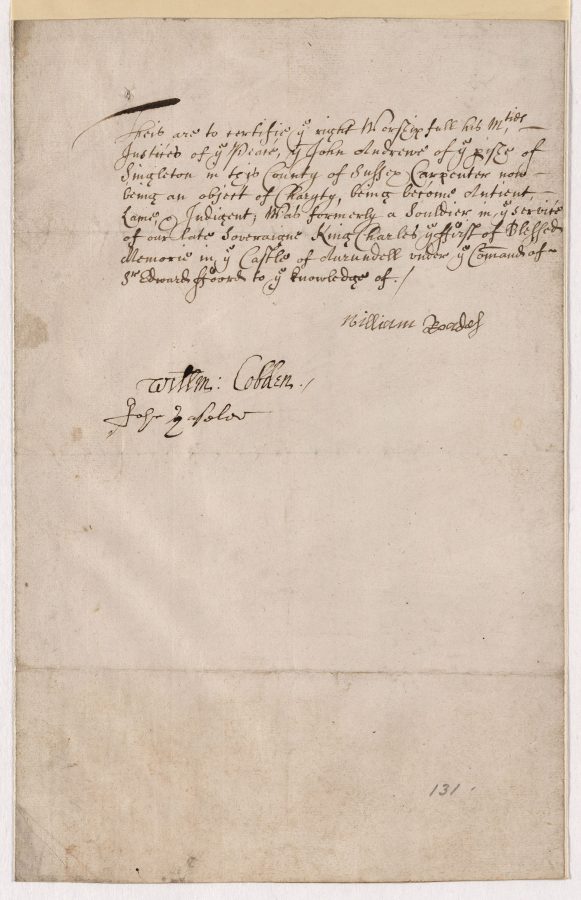 Theis are to certifie yͤ right Worshipfull his Mͭⁱᵉˢ
Justices of yͤ Peace, yͭ John Andrewe of yͤ pish of
Singleton in this County of Sussex Carpenter now
being an object of Charyty, being become Antient,
Lame, & Indigent; Was formerly a Souldier in yͤ Service
of our late Soveraigne King Charles yͤ ffirst of Blessed
Memorie in yͤ Castle of Arundell vnder yͤ Comand of
Sͬ Edward fford to yͤ knowledge of./
William Roades
Willm: Cobden./
John
131